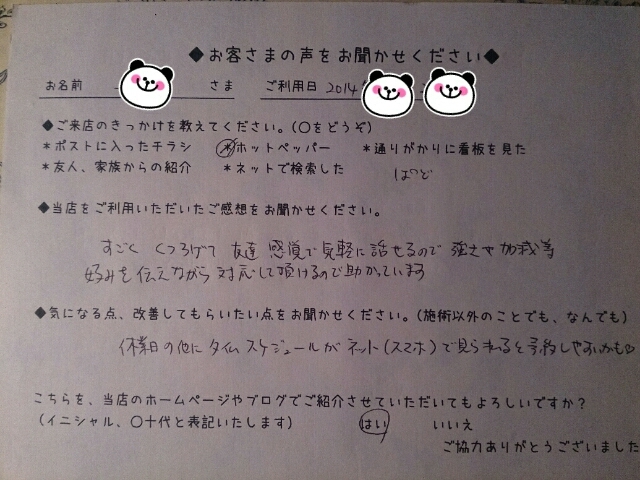 ◆お客さまの声をお聞かせください◆
お名前 さま ご利用日 2014
◆ご来店のきっかけを教えてください。(〇をどうぞ)
*ポストに入ったチラシ *ホットペッパー *通りがかりに看板を見た
*友人、家族からの紹介 *ネットで検索した
◆当店をご利用いただいたご感想をお聞かせください。
すごく くつろげて 友達感覚で気軽に話せるので 強さや加減等
好みを伝えながら対応して頂けるので助かっています
◆気になる点、改善してもらいたい点をお聞かせください。(施術以外のことでも、なんでも)
休業日の他に タイムスケジュールが ネット(スマホ)で見られると予約しやすいかも♡
こちらを、当店のホームページやブログでご紹介させていただいてもよろしいですか?
(イニシャル、〇十代と表記いたします) はい いいえ
ご協力ありがとうございました